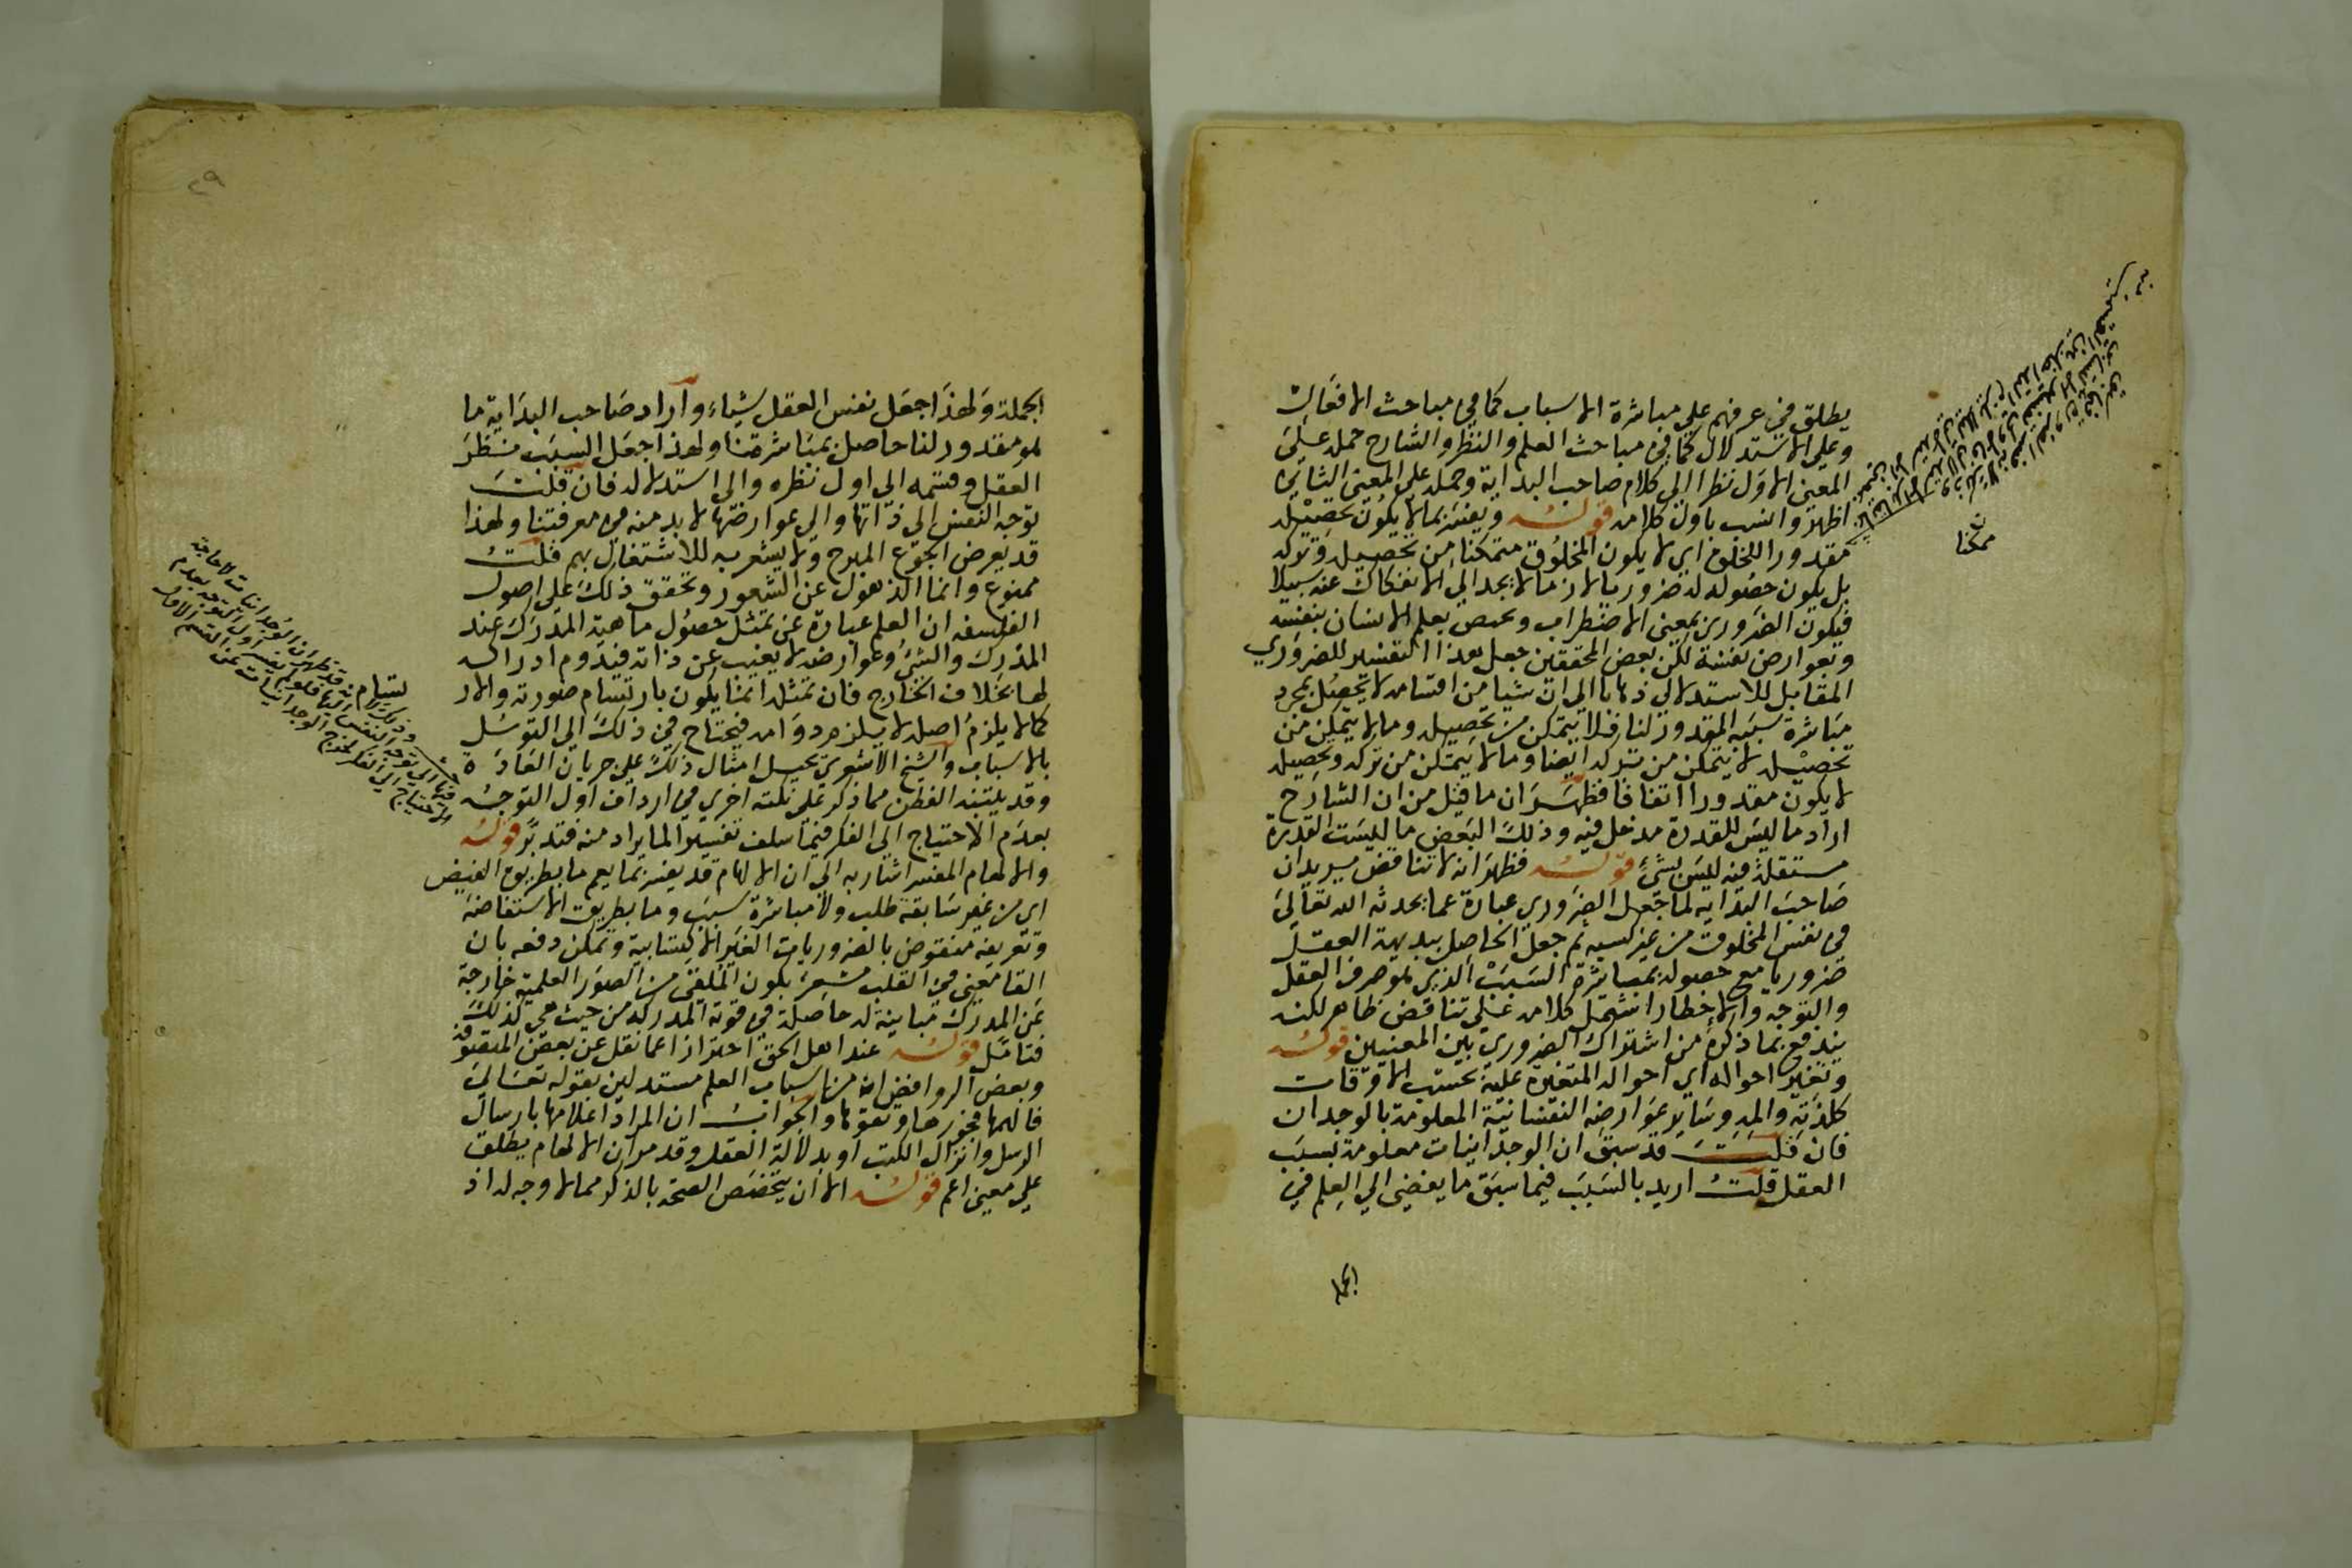 يطلق في عرفهم علي مباشرة الاسباب كما في مباحث الافعال
وعلي الاستدلال كما في مباحث العلم والنظر والشارح حمله علي
المعني الاول نظرا الي كلام صاحب البداية وحمله علي المعني الثاني
اظهر وانسب باول كلامه قوله ويفسر بما لا يكون تحصيله
مقدورا للمخلوق اي لا يكون المخلوق متمكنا من تحصيله وتركه
بل يكون حصوله له ضروريا لازما لا يجد الي الانفكاك عنه سبيلا
فيكون الضروري بمعني الاضطراب ويخص بعلم الانسان بنفسه
وبعوارض نفسه لكن بعض المحققين جعل هذا التفسير للضروري
المقابل للاستدلالي ذهابا الي ان شيا من اقسامه لا يحصل بمجرد
مباشرة سببه المقدور لنا فلا يتمكن من تحصيله وما لا يتمكن من
تحصيله لا يتمكن من تركه ايضا وما لا يتمكن من تركه وتحصيله
لا يكون مقدورا اتفاقا فظهر ان ما قيل من ان الشارح
اراد ما ليس للقدرة مدخل فيه وذلك البعض ما ليست القدرة
مستقلة فيه ليس بشئ قوله فظهر انه لا تناقض يريد ان
صاحب البداية لما جعل الضروري عبارة عما يحدثه الله تعالي
في نفس المخلوق من غير كسبه ثم جعل الحاصل ببديهة العقل
ضروريا مع حصوله بمباشرة السبب الذي هو صرف العقل
والتوجه والاخطار اشتمل كلامه علي تناقض ظاهر لكنه
يندفع بما ذكره من اشتراك الضروري بين المعنيين قوله
وتغير احواله اي احواله المتغيرة عليه بحسب الاوقات
كلذته والمه وساير عوارضه النفسانية المعلومة بالوجدان
فان قلت قد سبق ان الوجدانيات معلومة بسبب
العقل قلت اريد بالسبب فيما سبق ما يفضي الي العلم في
الجملة
ممكنا
٢٩
الجملة ولهذا جعل نفس العقل سببا واراد صاحب البداية ما
هو مقدور لنا حاصل بمباشرتنا ولهذا جعل السبب منظر
العقل وقسمه الي اول نظره والي استدلاله فان قلت
توجه النفس الي ذاتها والي عوارضها لا بد منه في معرفتنا ولهذا
قد يعرض الجوع المبرح ولا يشعر به للاشتغال بهم قلت
ممنوع وانما الذهول عن الشعور وتحقق ذلك علي اصول
الفلسفه ان العلم عبارة عن تمثل حصول ماهية المدرك عند
المدرك والشئ وعوارضه لا يغيب عن ذاته فيدوم ادراكه
لها بخلاف الخارج فان تمثله انما يكون بارتسام صورته والار
كما لا يلزم اصله لا يلزم دوامه فيحتاج في ذلك الي التوسل
بالاسباب والشيخ الاشعري يحيل امثال ذلك علي جريان العادة
وقد يتنبه الفطن مما ذكر علي نكته اخري في ارداف اول التوجه
بعدم الاحتياج الي الفكر فيما سلف تفسيرا لما يراد منه فتدبر قوله
والالهام المفسر اشار به الي ان الالهام قد يفسر بما يعم ما بطريق الفيض
اي من غير سابقة طلب ولا مباشرة سبب وما بطريق الاستفاضة
وتعريفه منقوض بالضروريات الغير الاكتسابية ويمكن دفعه بان
القا معني في القلب مشعر بكون الملقي من الصور العلمية خارجة
عن المدرك مباينة له حاصلة في قوته المدركه من حيث هي كذلك
فتامل قوله عند اهل الحق احترازا عما نقل عن بعض المتصوفة
وبعض الروافض انه من اسباب العلم مستدلين بقوله تعالي
فالهمها فجورها وتقوها والجواب ان المراد اعلامها بارسال
الرسل وانزال الكتب او بدلالة العقل وقد مر ان الالهام يطلق
علي معني اعم قوله الا ان تخصص الصحة بالذكر مما لا وجه له اذ